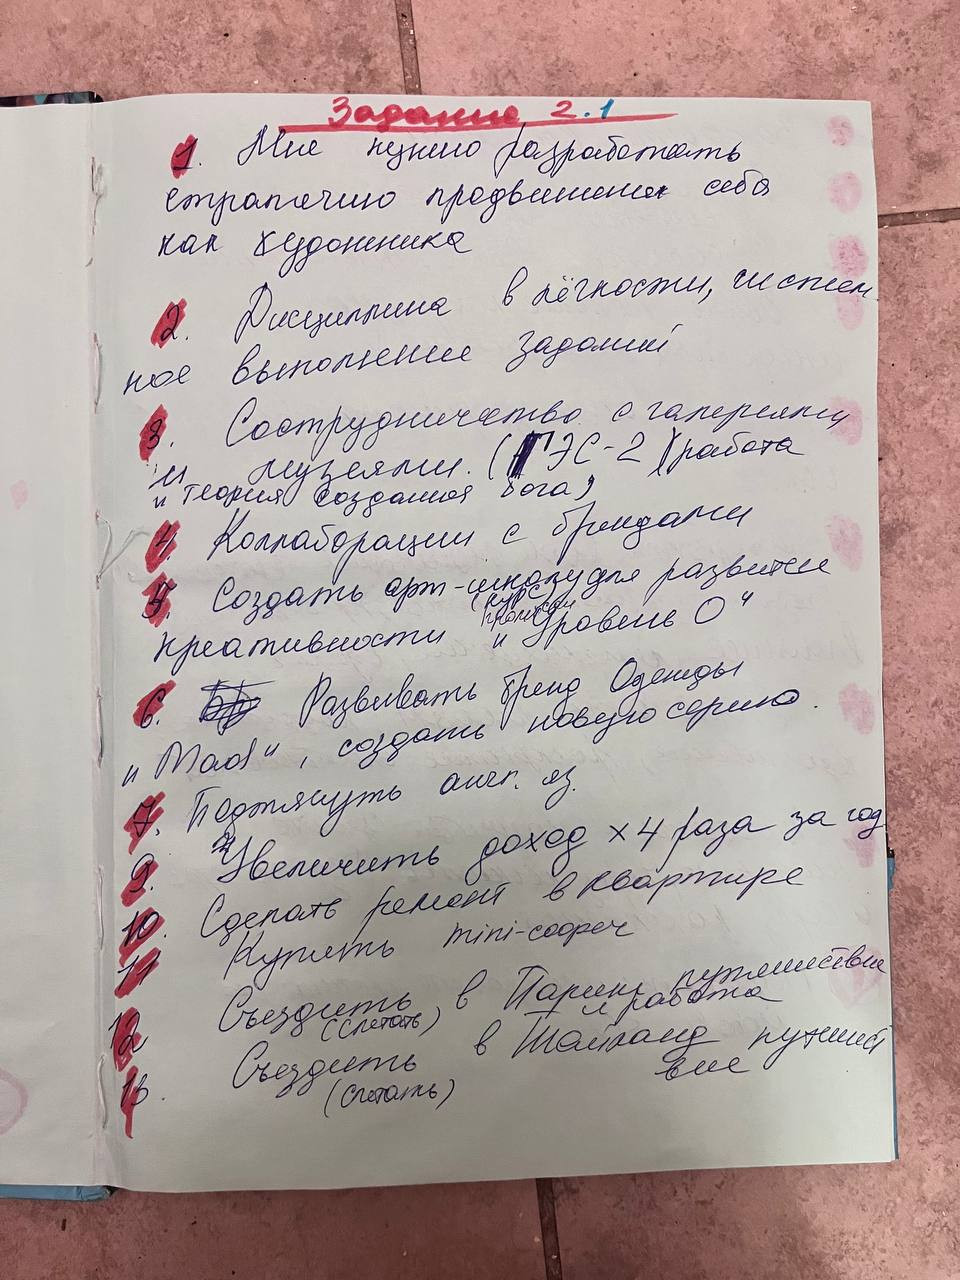 Задание 2.1
1. Мне нужно разработать
стратегию продвижения себя
как художника
2. Дисциплина в лёгкости, систем
ное выполнение заданий
3. Сострудничество с галереями
и музеями. (ГЭС-2) (работа
и теория создания бога)
4. Коллаборации с брендами
5. Создать арт-школу для развития
(курс
креативности "Уровень 0"
6. Развивать бренд Одежды
"Mad", создать новую серию.
7. Подтянуть англ. яз.
9. Увеличить доход х4 раза за год
10. Сделать ремонт в квартире
11 Купить mini-соорег
12 Съездить в Париж путешествие
(слетать) и работа
13. Съездить в Тайланд путешест
(слетать) вие